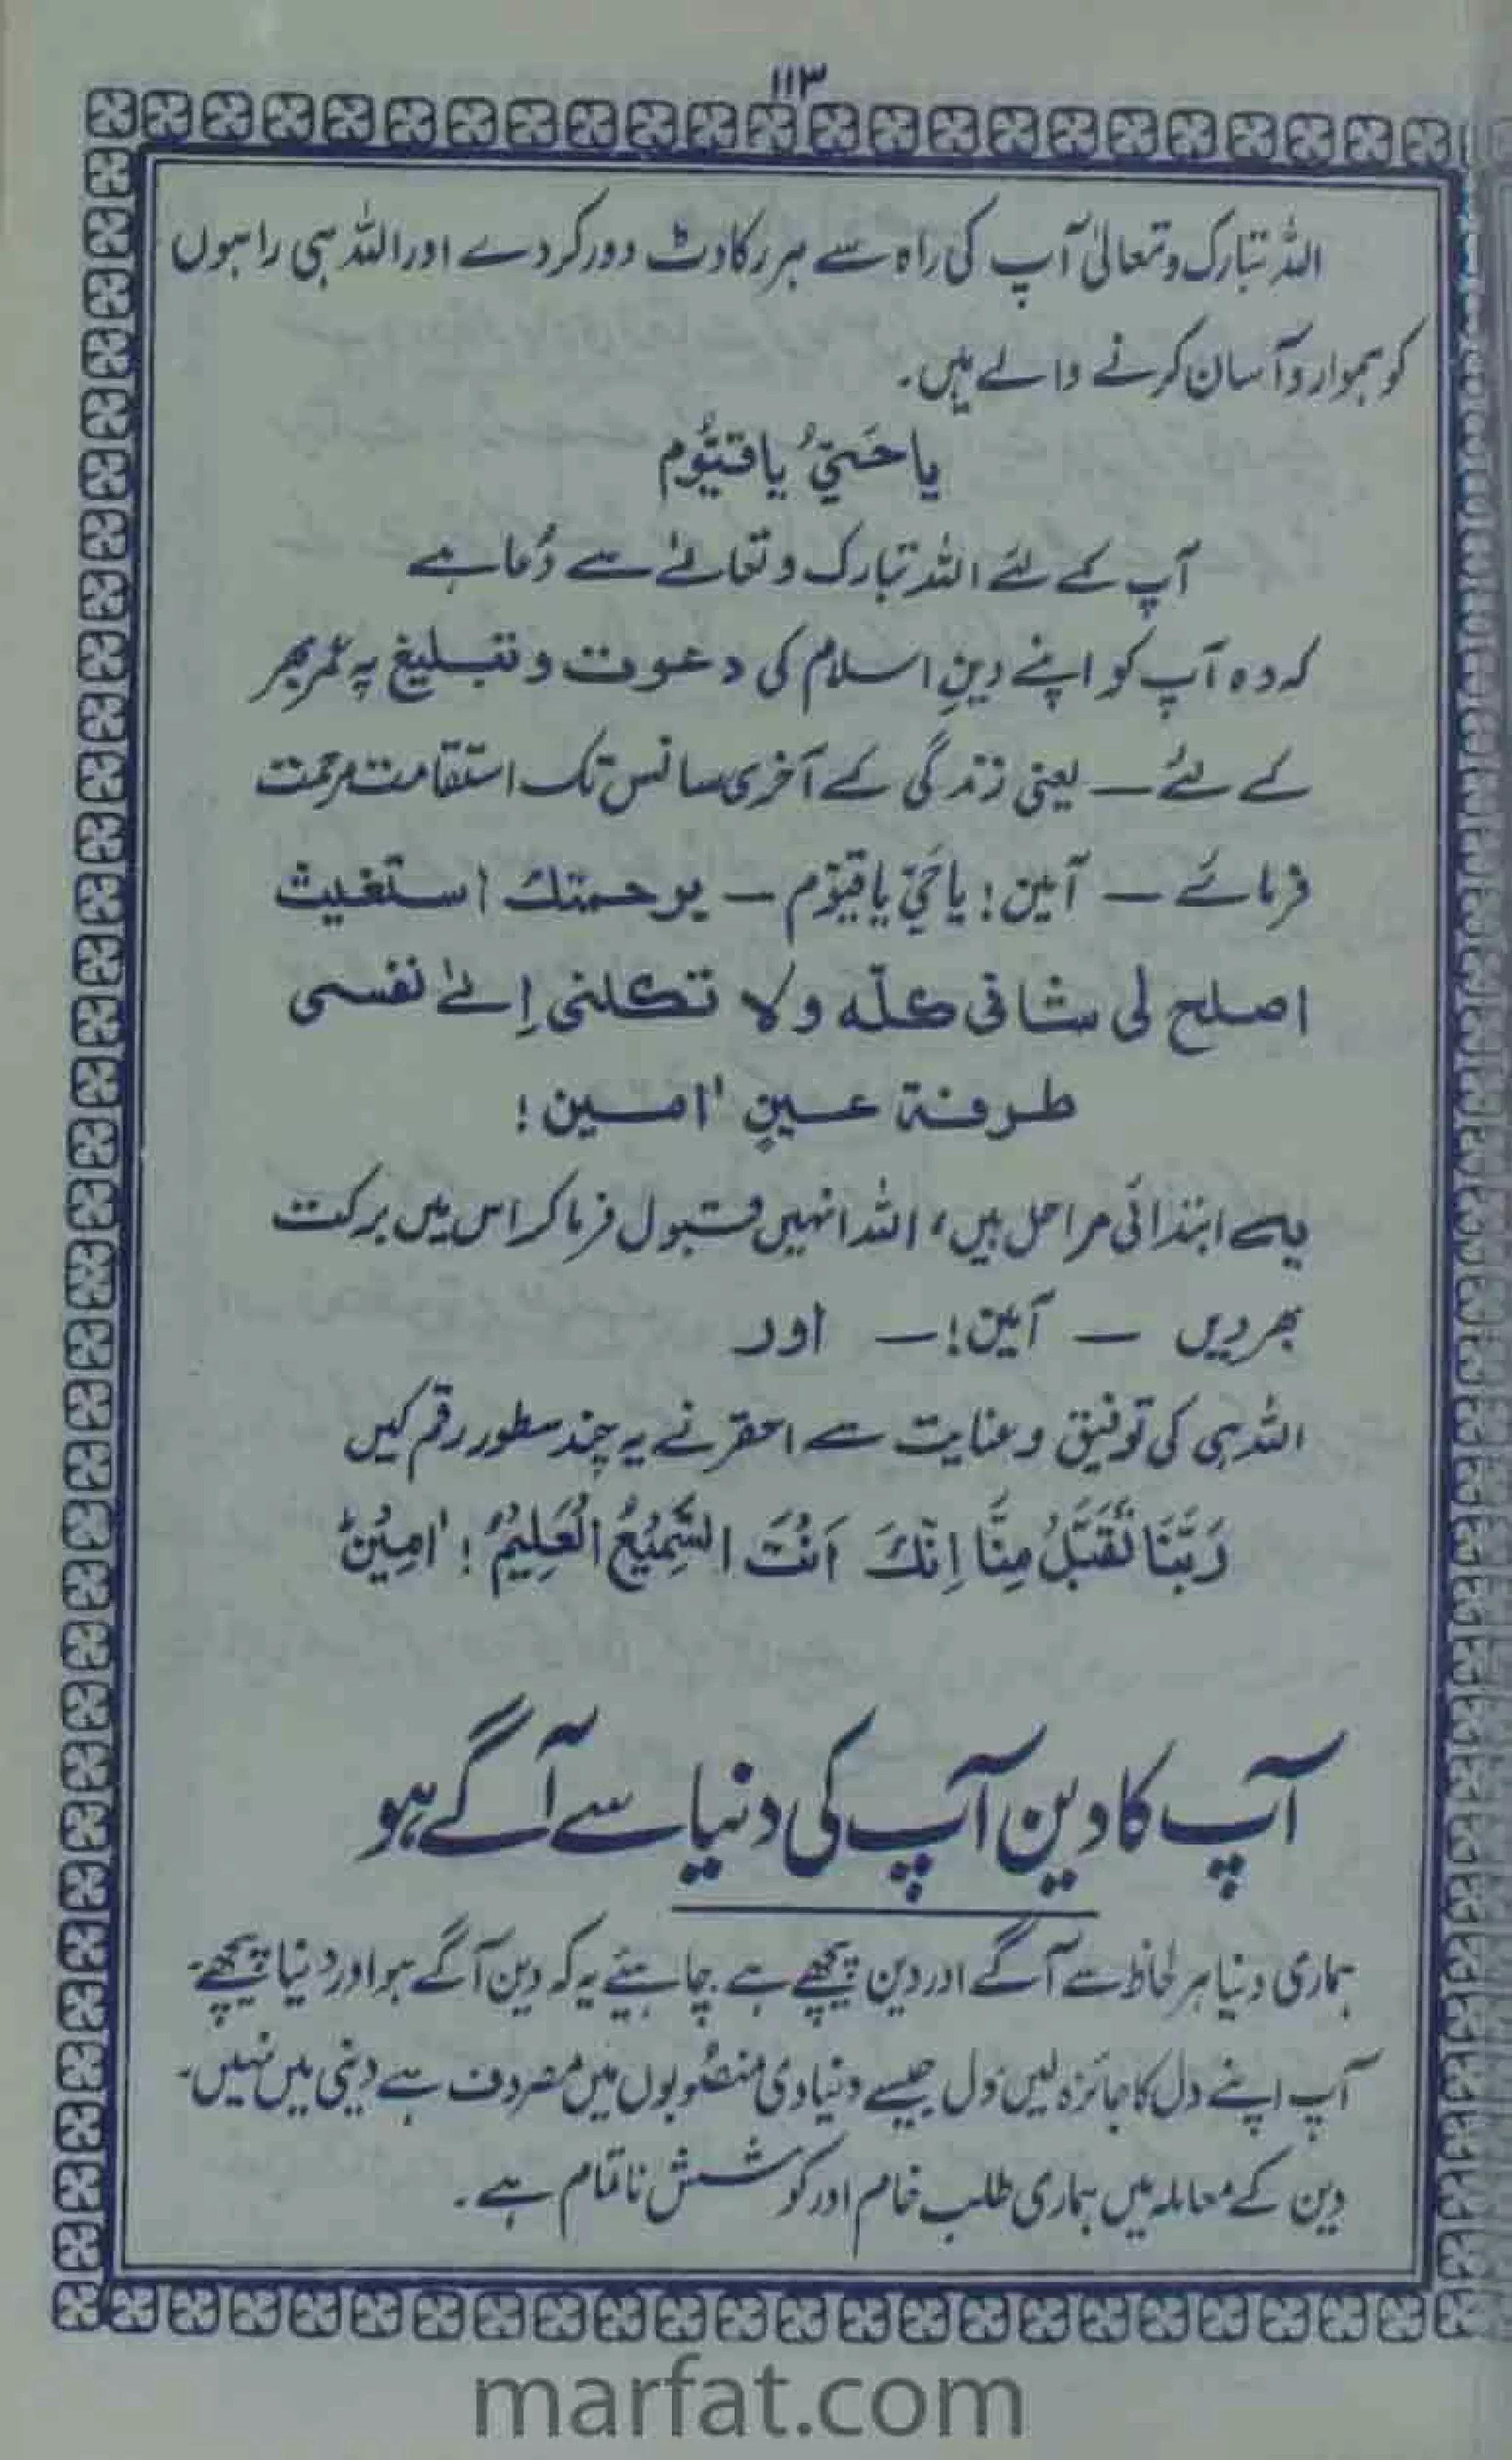 ۱۱۳
اللہ تبارک وتعالیٰ آپ کی راہ سے ہر رکاوٹ دور کر دے اور اللہ ہی راہوں
کو ہموار و آسان کرنے والے ہیں.
یا حَیُّ یا قیُّوم
آپ کے لئے اللہ تبارک و تعالےٰ سے دُعا ہے
کہ وہ آپ کو اپنے دینِ اسلام کی دعوت و تبلیغ پہ عُمر بھر
کے لئے — یعنی زندگی کے آخری سانس تک استقامت مرحمت
فرمائے — آمین! یا حَیُّ یا قیّوم — برحمتک استغیث
اصلح لی شانی کلّہ ولا تکلنی اِلےٰ نفسی
طرفة عینٍ اٰمین!
یہ ابتدائی مراحل ہیں، اللہ انہیں قبول فرما کر اس میں برکت
بھر دیں — آمین! — اور
اللہ ہی کی توفیق و عنایت سے احقر نے یہ چند سطور رقم کیں
رَبَّنَا تَقَبَّلْ مِنَّا اِنَّكَ اَنْتَ السَّمِيْعُ الْعَلِيْمُ! اٰمِيْن
آپ کا دین آپ کی دنیا سے آگے ہو
ہماری دنیا ہر لحاظ سے آگے اور دین پیچھے ہے. چاہئیے یہ کہ دین آگے ہو اور دنیا پیچھے۔
آپ اپنے دل کا جائزہ لیں دل جیسے دنیاوی منصوبوں میں مصروف ہے دینی میں نہیں۔
دین کے معاملہ میں ہماری طلب خام اور کوشش ناتمام ہے.
marfat.com